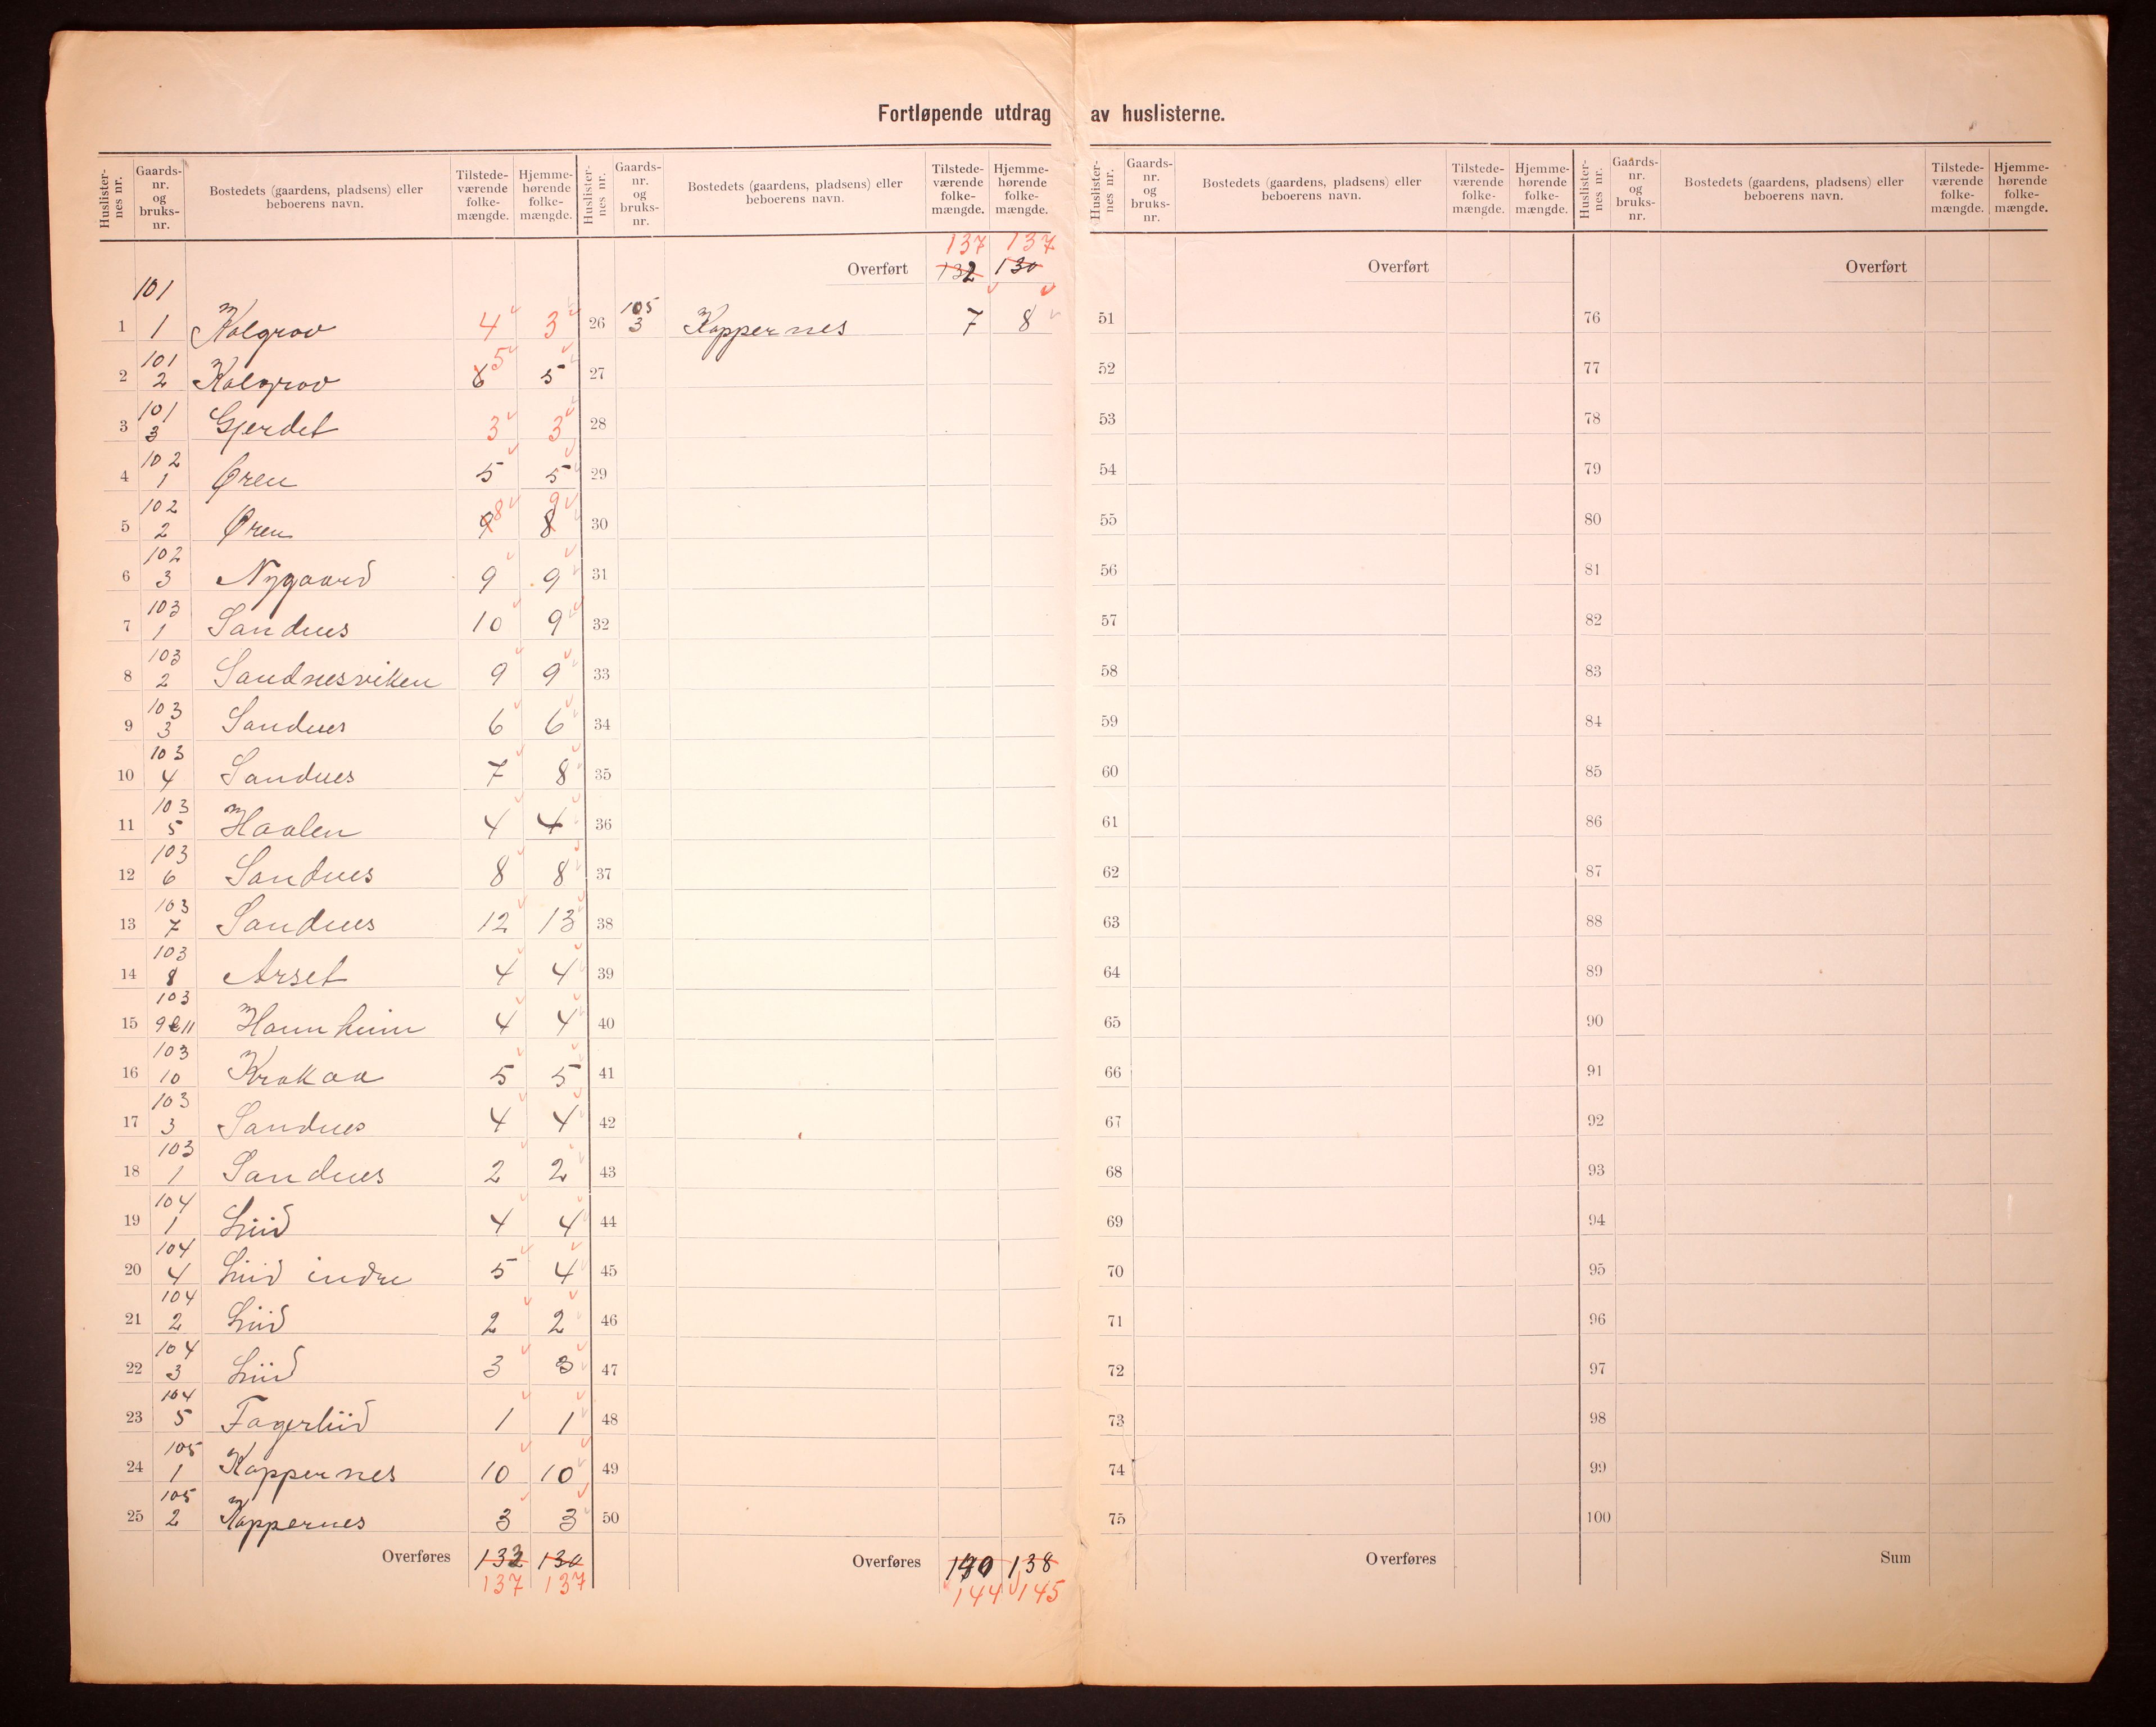 Fortløpende utdrag av huslisterne.
Huslister-nes nr. | Gaards-nr. og bruks-nr. | Bostedets (gaardens, pladsens) eller beboerens navn. | Tilstede-værende folke-mængde. | Hjemme-hørende folke-mængde.
1 | 101 1 | Kolgrov | 4 | 3
2 | 101 2 | Kolgrov | 6 5 | 5
3 | 101 3 | Gjerdet | 3 | 3
4 | 102 1 | Øren | 5 | 5
5 | 102 2 | Øren | 9 8 | 8 9
6 | 102 3 | Nygaard | 9 | 9
7 | 103 1 | Sandnes | 10 | 9
8 | 103 2 | Sandnesviken | 9 | 9
9 | 103 3 | Sandnes | 6 | 6
10 | 103 4 | Sandnes | 7 | 8
11 | 103 5 | Haalen | 4 | 4
12 | 103 6 | Sandnes | 8 | 8
13 | 103 7 | Sandnes | 12 | 13
14 | 103 8 | Arset | 4 | 4
15 | 103 9 & 11 | Hamnheim | 4 | 4
16 | 103 10 | Krakaa | 5 | 5
17 | 103 3 | Sandnes | 4 | 4
18 | 103 1 | Sandnes | 2 | 2
19 | 104 1 | Liid | 4 | 4
20 | 104 4 | Liid indre | 5 | 4
21 | 104 2 | Liid | 2 | 2
22 | 104 3 | Liid | 3 | 3
23 | 104 5 | Fagerliid | 1 | 1
24 | 105 1 | Kappernes | 10 | 10
25 | 105 2 | Kappernes | 3 | 3
Overføres | 132 | 130
137 | 137
Huslister-nes nr. | Gaards-nr. og bruks-nr. | Bostedets (gaardens, pladsens) eller beboerens navn. | Tilstede-værende folke-mængde. | Hjemme-hørende folke-mængde.
137 | 137
Overført | 132 | 130
26 | 105 3 | Kappernes | 7 | 8
27
28
29
30
31
32
33
34
35
36
37
38
39
40
41
42
43
44
45
46
47
48
49
50
Overføres | 190 | 138
144 | 145
Huslister-nes nr. | Gaards-nr. og bruks-nr. | Bostedets (gaardens, pladsens) eller beboerens navn. | Tilstede-værende folke-mængde. | Hjemme-hørende folke-mængde.
Overført
51
52
53
54
55
56
57
58
59
60
61
62
63
64
65
66
67
68
69
70
71
72
73
74
75
Overføres
Huslister-nes nr. | Gaards-nr. og bruks-nr. | Bostedets (gaardens, pladsens) eller beboerens navn. | Tilstede-værende folke-mængde. | Hjemme-hørende folke-mængde.
Overført
76
77
78
79
80
81
82
83
84
85
86
87
88
89
90
91
92
93
94
95
96
97
98
99
100
Sum